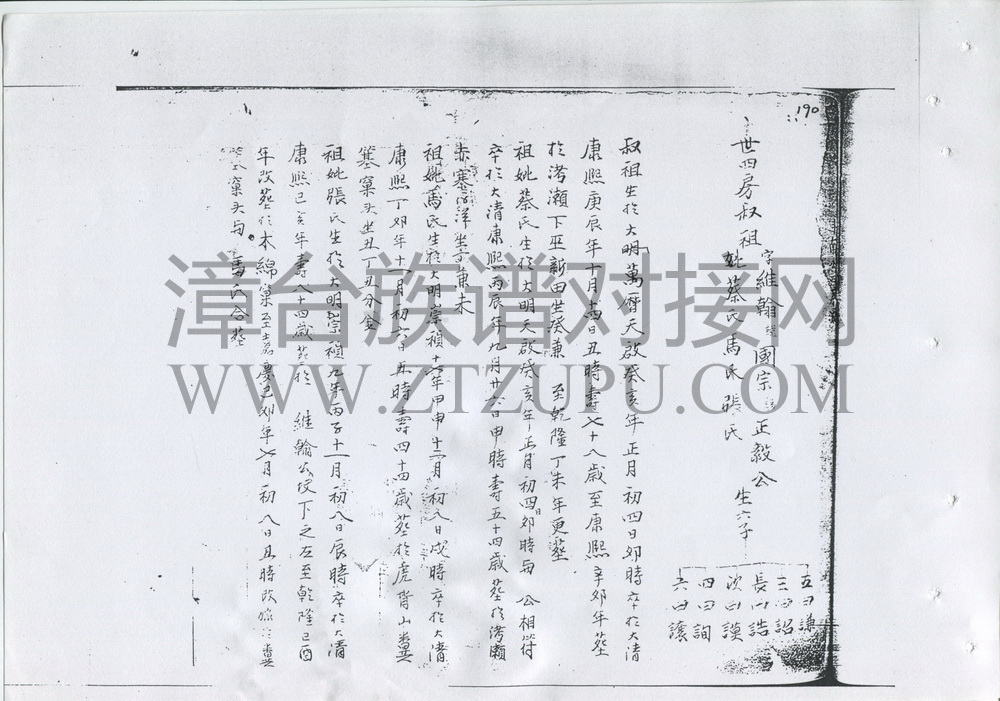 190
世四房叔祖
字維翰 國宗 正毅公
妣蔡氏馬氏張氏
生六子
五曰謙
三曰詔
長曰誥
次曰謨
四曰詢
六曰讓
叔祖生於大明萬曆天啟癸亥年正月初四日卯時卒於大清
康熙庚辰年十月 日丑時壽七十八歲至康熙辛卯年葬
於湳瀬下 新田坐癸兼 至乾隆丁未年更葬
祖妣蔡氏生於大明天啟癸亥年正月初四日卯時與 公相符
卒於大清康熙丙辰年九月廿六日申時壽五十四歲葬於湳瀬
赤塞 洋坐 兼未
祖妣馬氏生於大明崇禎十七年甲申十二月初八日戌時卒於大清
康熙丁卯年十一月初六日丑時壽四十四歲葬於虎背山糞
箕窠头坐丑丁丑分金
祖妣張氏生於大明崇禎九年丙子十一月初八日辰時卒於大清
康熙己亥年壽八十四歲葬於 維翰公坟下之左至乾隆己酉
年改葬於本綿窠至嘉慶己卯年七月初八日丑時改 糞
箕窠头与 馬氏合葬
漳台族谱对接网
WWW.ZTZUPU.COM